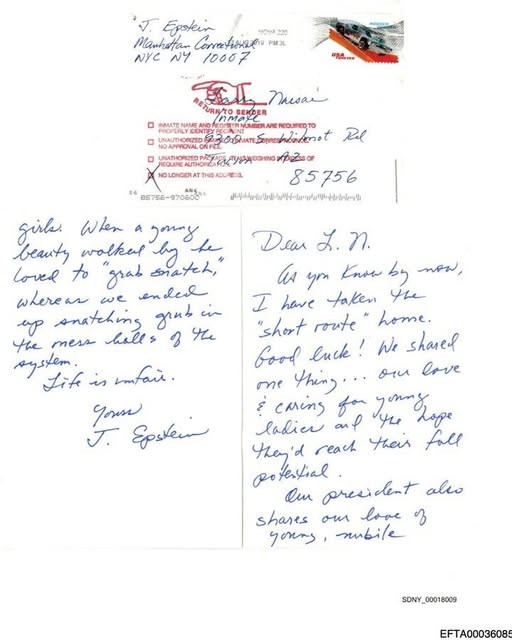 J. Epstein
Manhatan Correctional
NYC NY 10007
NOVA 220
2019 PM 3L
USA
FOREVER
Larry Nassar
RETURN TO SENDER
Inmate
INMATE NAME AND REGISTER NUMBER ARE REQUIRED TO
PROPERLY IDENTIFY RECIPIENT
9300 S. Wilmot Rd
UNAUTHORIZED
NO APPROVAL ON FILE.
Tucson AZ
UNAUTHORIZED
WEIGHING
OF
REQUIRE
85756
NO LONGER AT THIS ADDRESS.
85756-970600
Dear L. N.
As you know by now,
I have taken the
"short route" home.
Good luck! We shared
one thing... our love
& caring for young
ladies and the hope
they'd reach their full
potential.
Our president also
shares our love of
young, nubile
girls. When a young
beauty walked by he
loved to "grab snatch,"
whereas we ended
up snatching grub in
the mess halls of the
system.
Life is unfair.
Yours
J. Epstein
SDNY_00018009
EFTA00036085